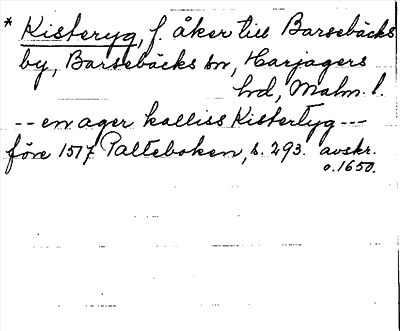 * Kisteryg, f. åker till Barsebäcks
by, Barsebäcks sn, Harjagers
hd, Malm. l.
-- en ager kalliss Kistertyg ---
före 1517 Palteboken, s. 293. avskr.
o. 1650.